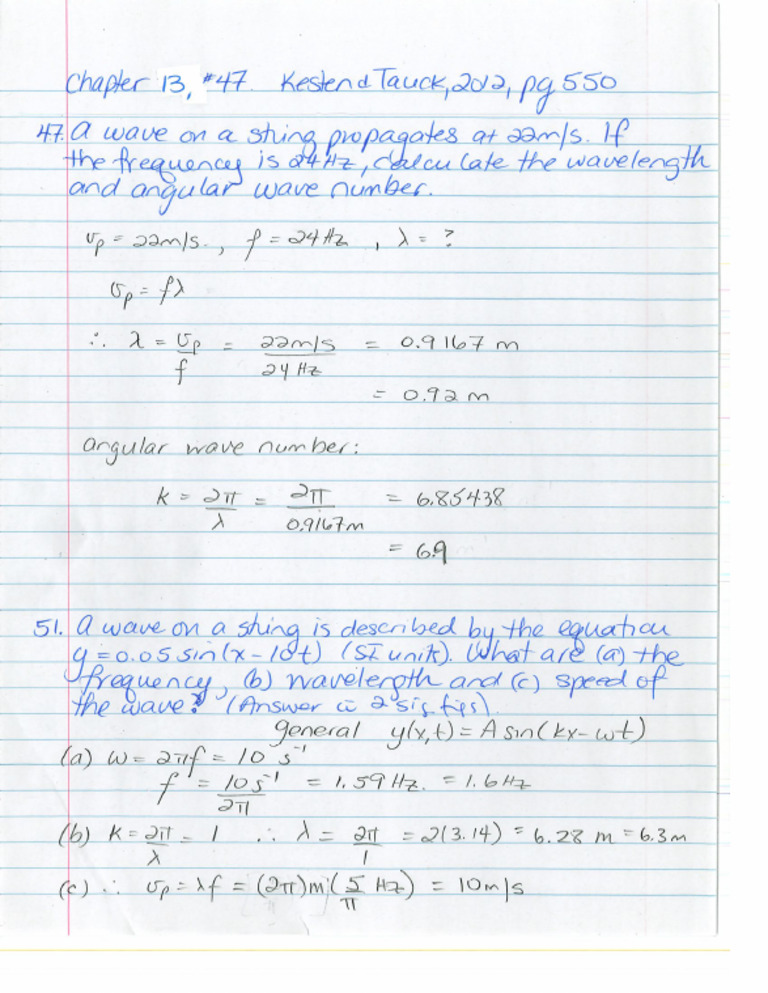 Chapter 13, #47. Kesten & Tauck, 2012, pg 550
47. A wave on a string propagates at 22m/s. If
the frequency is 24Hz, calculate the wavelength
and angular wave number.
υp = 22m/s. , f = 24Hz , λ = ?
υp = fλ
∴ λ = υp/f = 22m/s / 24 Hz = 0.9167 m
= 0.92 m
angular wave number:
k = 2π/λ = 2π/0.9167m = 6.85438
= 6.9
51. A wave on a string is described by the equation
y = 0.05 sin(x - 10t) (SI units). What are (a) the
frequency, (b) wavelength and (c) speed of
the wave? (Answer in 2 sig figs).
general y(x,t) = A sin(kx - ωt)
(a) ω = 2πf = 10 s⁻¹
f = 10 s⁻¹/2π = 1.59 Hz. = 1.6 Hz
(b) k = 2π/λ = 1 ∴ λ = 2π/1 = 2(3.14) = 6.28 m = 6.3m
(c) ∴ υp = λf = (2π)m (5/π Hz) = 10m/s